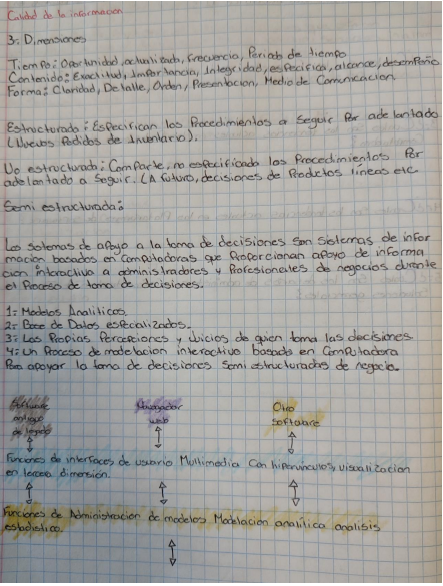 Calidad de la información
3: Dimensiones
Tiempo: Oportunidad, actualizada, frecuencia, Periodo de tiempo
Contenido: Exactitud, Importancia, Integridad, especifica, alcance, desempeño
Forma: Claridad, Detalle, Orden, Presentacion, Medio de Comunicacion.
Estructurado: Especifican los Procedimientos a Seguir Por adelantado
(Nuevos Pedidos de Inventario).
No estructurado: Comparte, no especificado los Procedimientos Por
adelantado a seguir. (A futuro, decisiones de Productos líneas etc.
Semi estructurada:
Los sistemas de apoyo a la toma de decisiones son sistemas de infor
macion basados en Computadoras que Proporcionan apoyo de informa
cion interactiva a administradores y Profesionales de negocios durante
el Proceso de toma de decisiones.
1: Modelos Analiticos
2: Base de Datos especializados.
3: Las Propias Percepciones y Juicios de quien toma las decisiones
4: Un Proceso de modelacion interactivo basado en Computadora
Para apoyar la toma de decisiones Semi estructuradas de negocio.
Software Navegador Otro
antiguo web Software
de legado
Funciones de interfaces de usuario Multimedia Con hipervinculos, visualizacion
en tercera dimension.
Funciones de Administracion de modelos Modelacion analitica analisis
estadistico